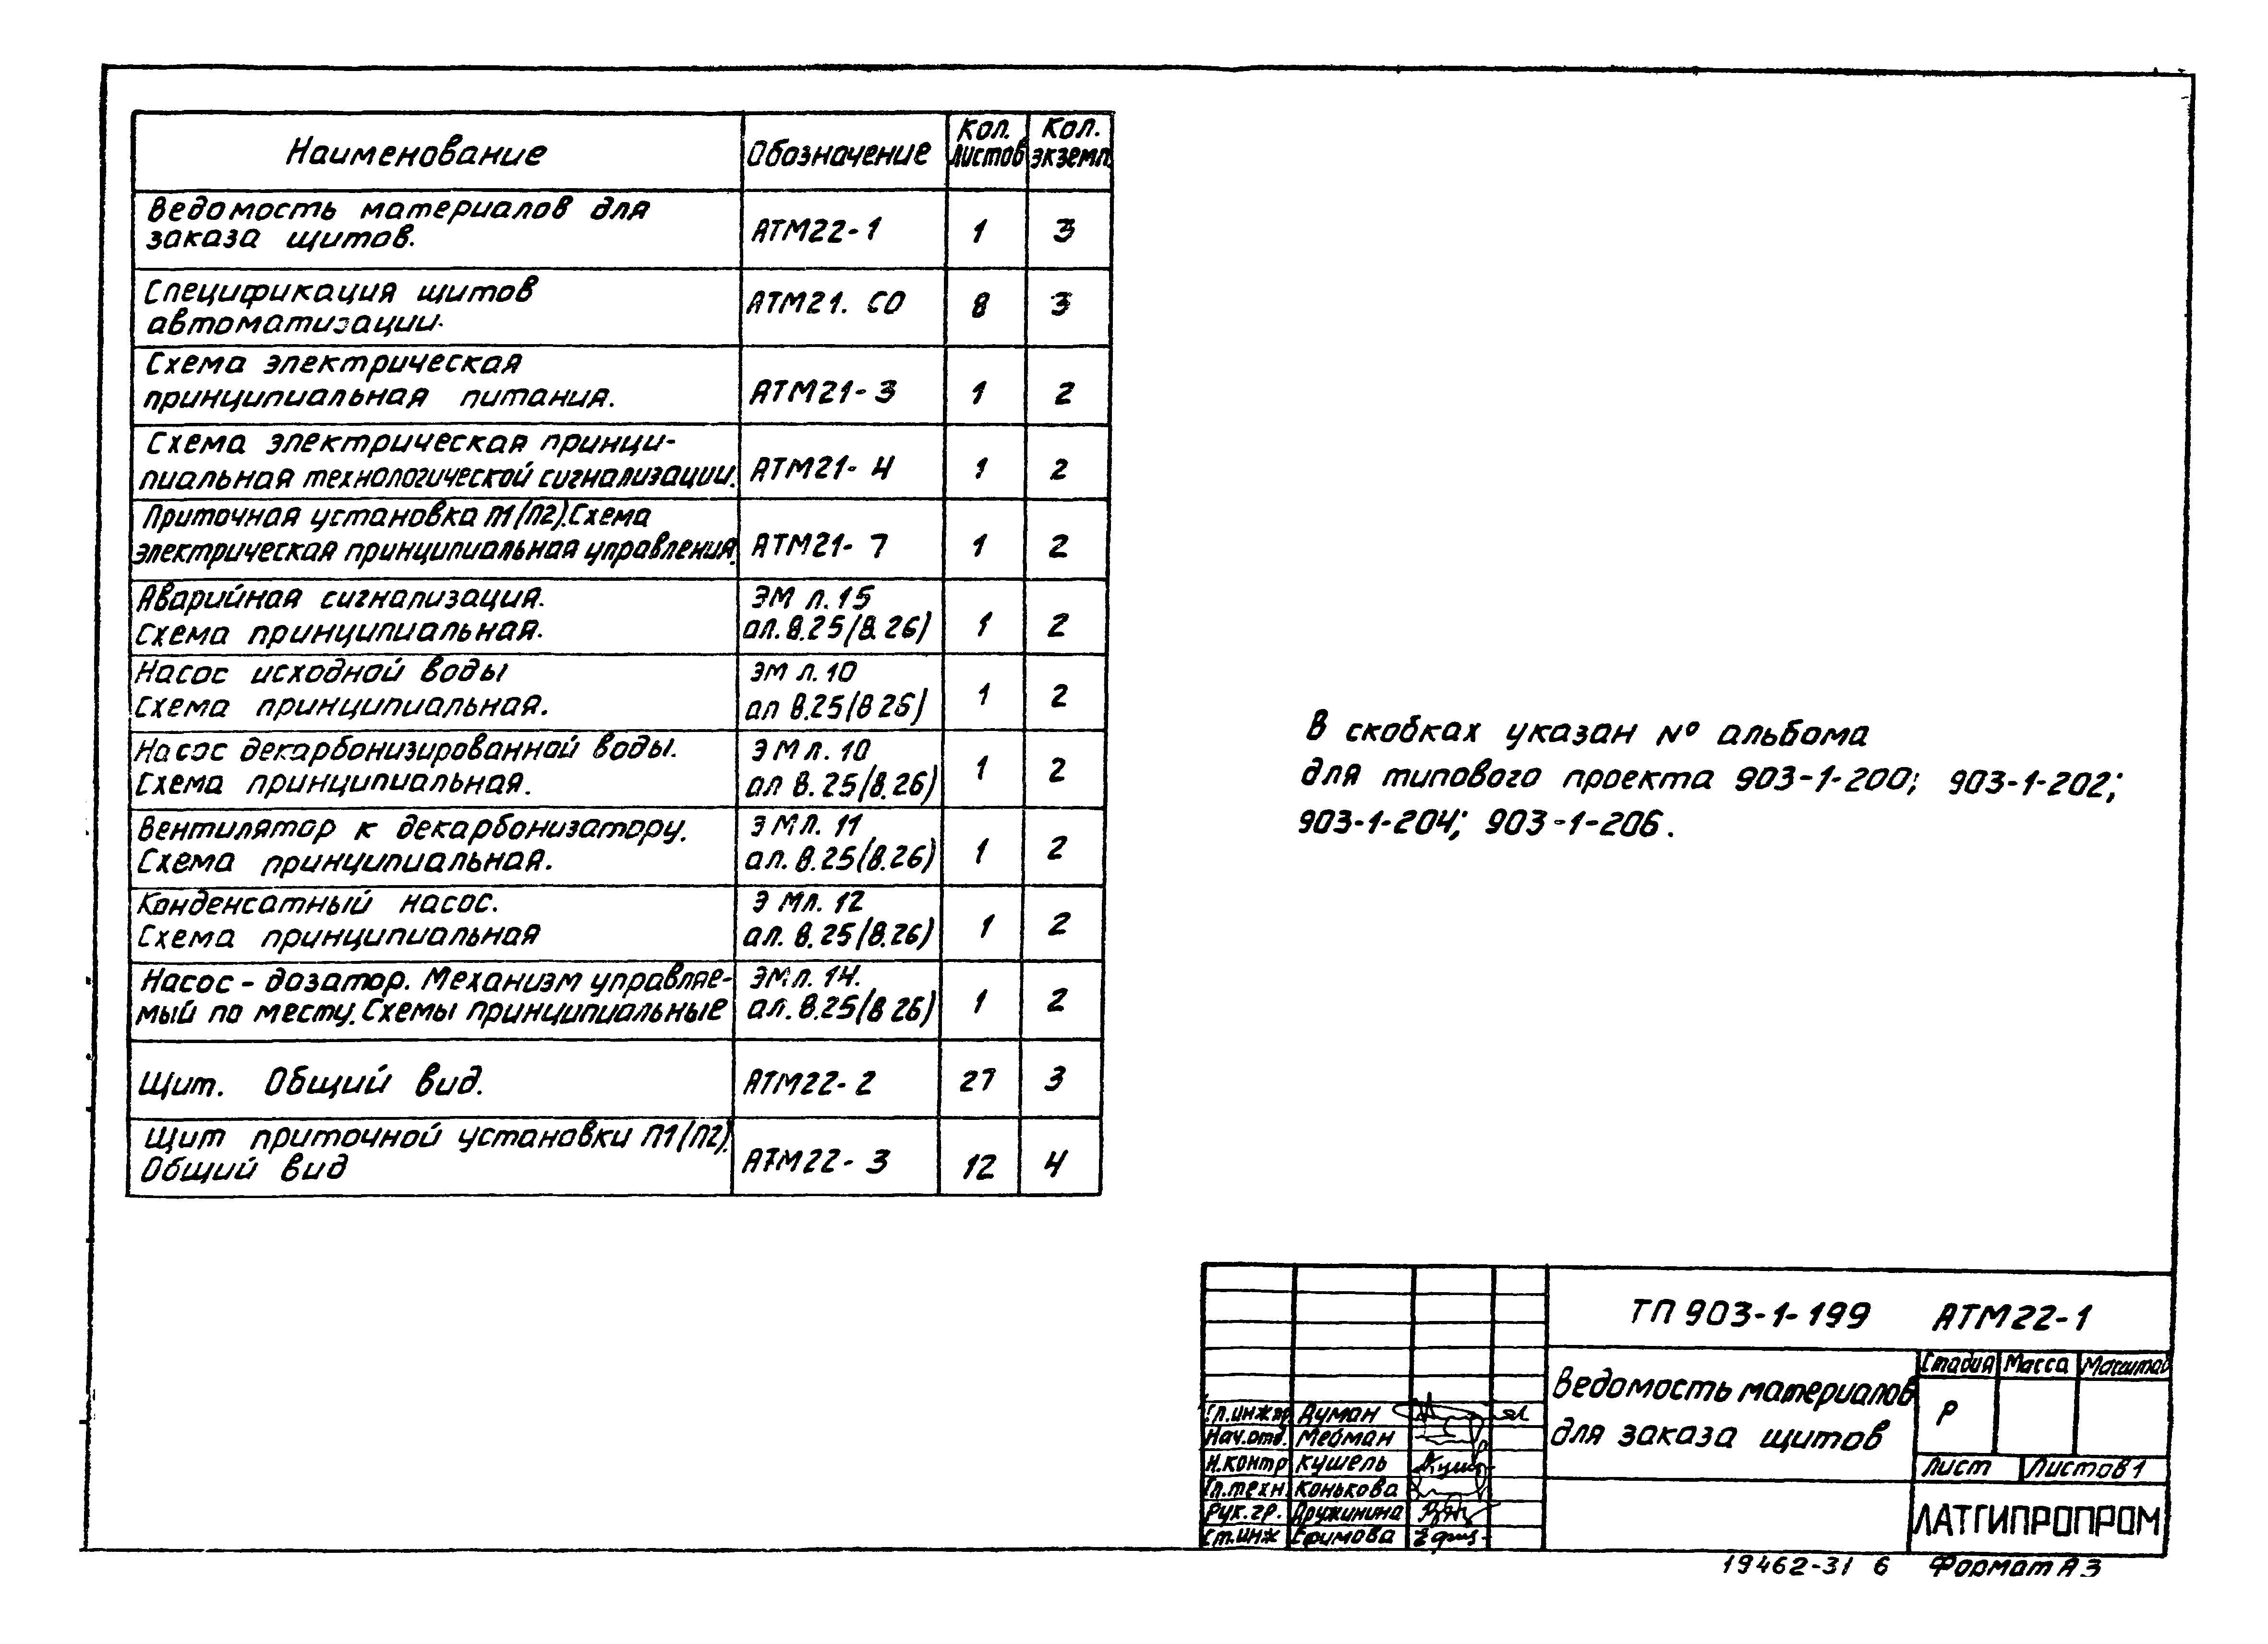 Наименование
Обозначение
Кол. листов
Кол. экземп.
Ведомость материалов для
заказа щитов.
АТМ22-1
1
3
Спецификация щитов
автоматизации.
АТМ21. СО
8
3
Схема электрическая
принципиальная питания.
АТМ21-3
1
2
Схема электрическая принци-
пиальная технологической сигнализации.
АТМ21-4
1
2
Приточная установка П1(П2). Схема
электрическая принципиальная управления.
АТМ21-7
1
2
Аварийная сигнализация.
Схема принципиальная.
ЭМ л.15
ал.8.25/8.26)
1
2
Насос исходной воды
Схема принципиальная.
ЭМ л.10
ал 8.25/8 26)
1
2
Насос декарбонизированной воды.
Схема принципиальная.
ЭМ л. 10
ал 8.25/8.26)
1
2
Вентилятор к декарбонизатору.
Схема принципиальная.
ЭМЛ. 11
ал. 8.25/8.26)
1
2
Конденсатный насос.
Схема принципиальная
ЭМл. 12
ал. 8.25/8.26)
1
2
Насос - дозатор. Механизм управляе-
мый по месту. Схемы принципиальные
ЭМ л. 14.
ал. 8.25/8 26)
1
2
Щит. Общий вид.
АТМ22-2
27
3
Щит приточной установки П1(П2).
Общий вид
АТМ22-3
12
4
В скобках указан № альбома
для типового проекта 903-1-200; 903-1-202;
903-1-204; 903-1-206.
ТП 903-1-199 АТМ22-1
Ведомость материалов
для заказа щитов
Стадия Масса Масштаб
Р
Лист Листов 1
ЛАТГИПРОПРОМ
Гл.инж.пр Думан
Нач.отд. Мебман
Н.контр Кушель
Гл.техн. Конькова
Рук.гр. Дружинина
Ст.инж Ефимова
19462-31 6 Формат А3